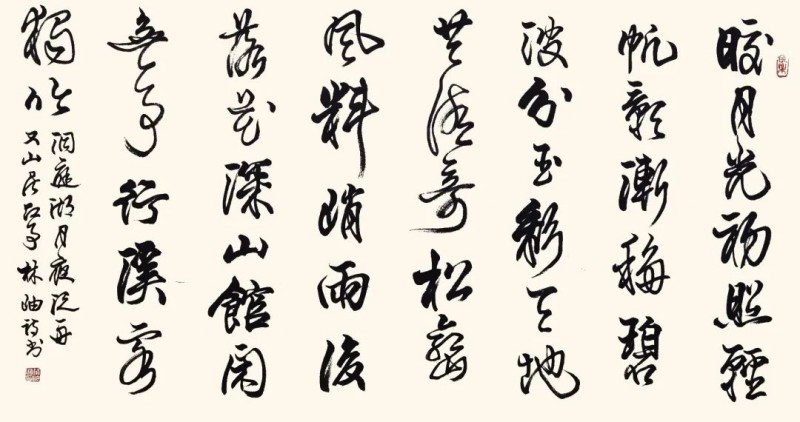 皎月光初照輕
帆影漸移碧
波分玉彩天地
共清奇松壑
風料峭雨後
落花深山館閑
無事行溪客
獨吟
洞庭湖月夜泛舟
又山居事林岫詩書